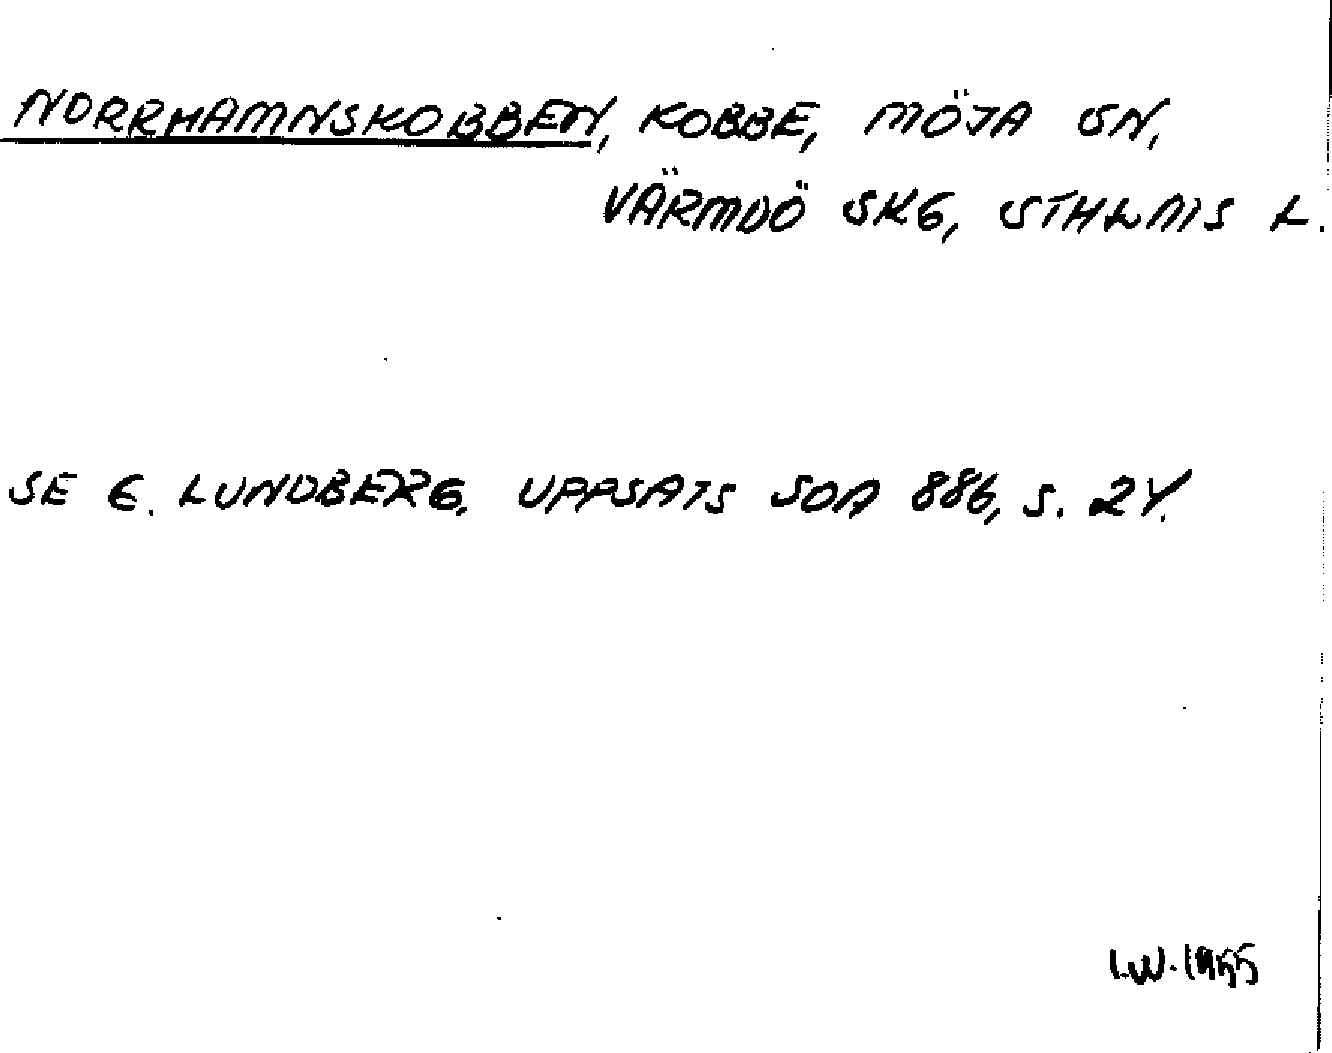 NORRHAMNSKOBBEN, KOBBE, MÖJA SN,
VÄRMDÖ SKG, STHLMS L.
SE E. LUNDBERG, UPPSATS SOA 886, S. 24.
I.W. 1955